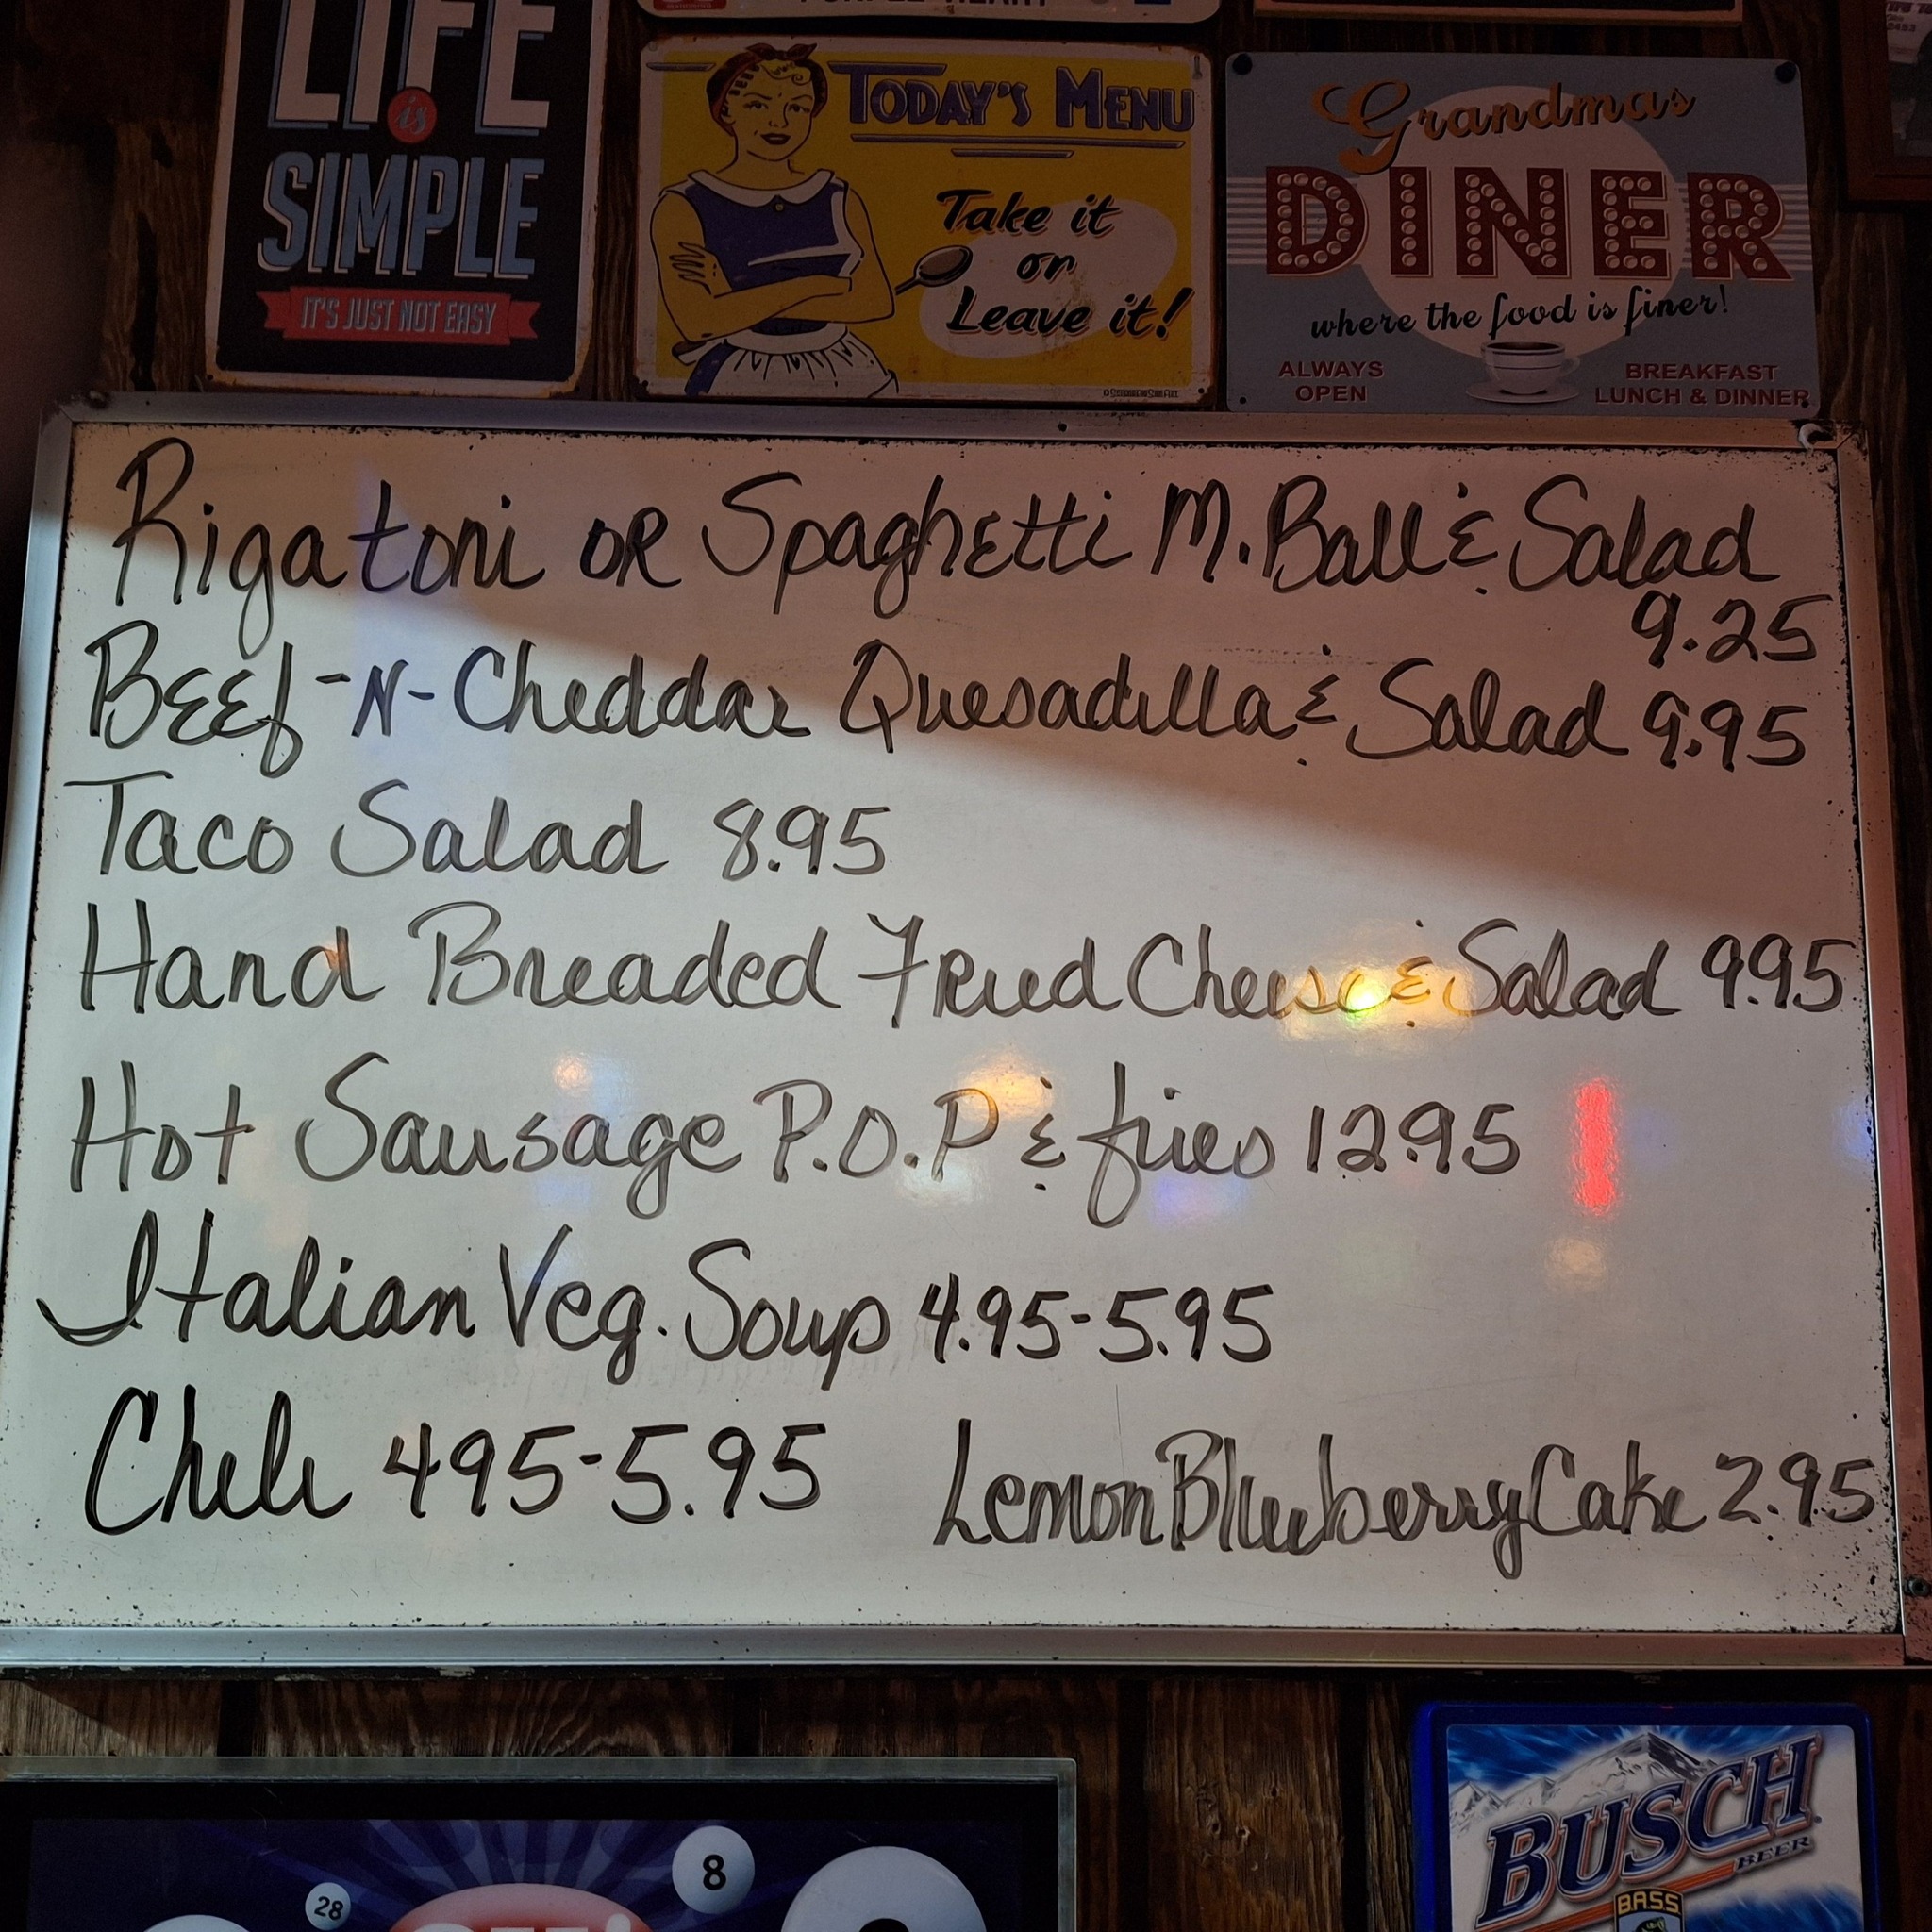 LIFE
is
SIMPLE
IT'S JUST NOT EASY
TODAY'S MENU
Take it
or
Leave it!
Grandmas
DINER
where the food is finer!
ALWAYS
OPEN
BREAKFAST
LUNCH & DINNER
Rigatoni OR Spaghetti M. Ball & Salad
9.25
Beef-N-Cheddar Quesadilla & Salad 9.95
Taco Salad 8.95
Hand Breaded Fried Cheese & Salad 9.95
Hot Sausage P.O.P & fries 12.95
Italian Veg. Soup 4.95-5.95
Chili 495-5.95
Lemon Blueberry Cake 2.95
BUSCH
BEER
BASS
8
28